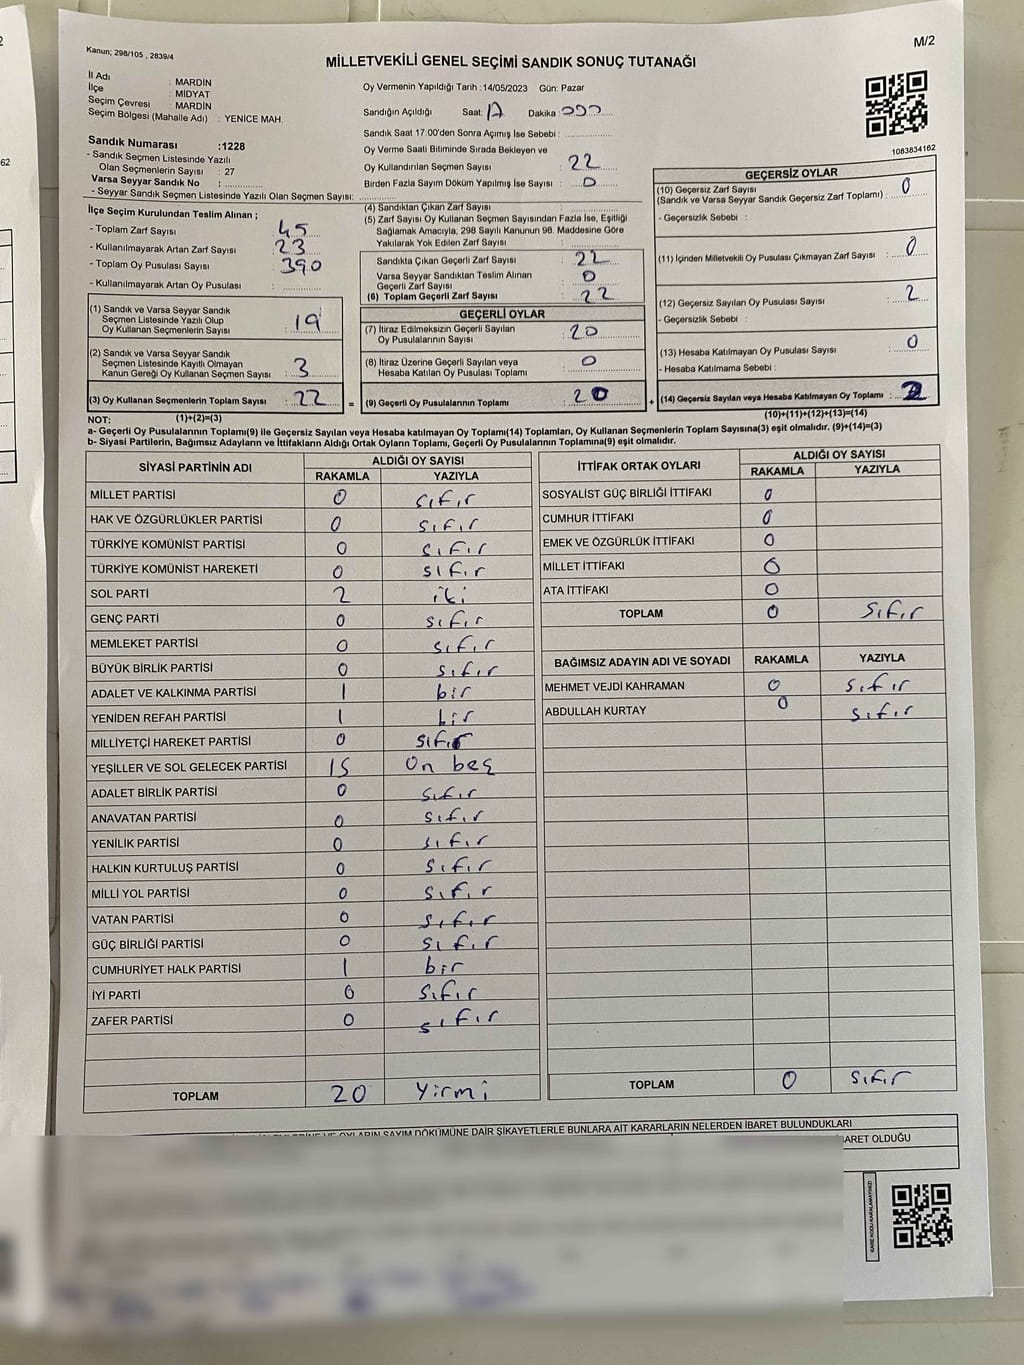 M/2
Kanun; 298/105 , 2839/4
MİLLETVEKİLİ GENEL SEÇİMİ SANDIK SONUÇ TUTANAĞI
İl Adı : MARDİN
İlçe : MİDYAT
Seçim Çevresi : MARDİN
Seçim Bölgesi (Mahalle Adı) : YENİCE MAH.
Sandık Numarası :1228
- Sandık Seçmen Listesinde Yazılı
Olan Seçmenlerin Sayısı : 27
Varsa Seyyar Sandık No :
- Seyyar Sandık Seçmen Listesinde Yazılı Olan Seçmen Sayısı:
Oy Vermenin Yapıldığı Tarih :14/05/2023 Gün: Pazar
Sandığın Açıldığı Saat: Dakika :
Sandık Saat 17.00'den Sonra Açımış İse Sebebi :
Oy Verme Saati Bitiminde Sırada Bekleyen ve
Oy Kullandırılan Seçmen Sayısı : 22
Birden Fazla Sayım Döküm Yapılmış İse Sayısı : 0
1083834162
İlçe Seçim Kurulundan Teslim Alınan ;
- Toplam Zarf Sayısı : 45
- Kullanılmayarak Artan Zarf Sayısı : 23
- Toplam Oy Pusulası Sayısı : 390
- Kullanılmayarak Artan Oy Pusulası :
(1) Sandık ve Varsa Seyyar Sandık
Seçmen Listesinde Yazılı Olup
Oy Kullanan Seçmenlerin Sayısı : 19
(2) Sandık ve Varsa Seyyar Sandık
Seçmen Listesinde Kayıtlı Olmayan
Kanun Gereği Oy Kullanan Seçmen Sayısı : 3
(3) Oy Kullanan Seçmenlerin Toplam Sayısı : 22 =
(4) Sandıktan Çıkan Zarf Sayısı :
(5) Zarf Sayısı Oy Kullanan Seçmen Sayısından Fazla İse, Eşitliği
Sağlamak Amacıyla, 298 Sayılı Kanunun 98. Maddesine Göre
Yakılarak Yok Edilen Zarf Sayısı :
Sandıkta Çıkan Geçerli Zarf Sayısı : 22
Varsa Seyyar Sandıktan Teslim Alınan
Geçerli Zarf Sayısı : 0
(6) Toplam Geçerli Zarf Sayısı : 22
GEÇERLİ OYLAR
(7) İtiraz Edilmeksizin Geçerli Sayılan
Oy Pusulalarının Sayısı : 20
(8) İtiraz Üzerine Geçerli Sayılan veya
Hesaba Katılan Oy Pusulası Toplamı : 0
(9) Geçerli Oy Pusulalarının Toplamı : 20 +
GEÇERSİZ OYLAR
(10) Geçersiz Zarf Sayısı
(Sandık ve Varsa Seyyar Sandık Geçersiz Zarf Toplamı) : 0
- Geçersizlik Sebebi :
(11) İçinden Milletvekili Oy Pusulası Çıkmayan Zarf Sayısı : 0
(12) Geçersiz Sayılan Oy Pusulası Sayısı : 2
- Geçersizlik Sebebi :
(13) Hesaba Katılmayan Oy Pusulası Sayısı : 0
- Hesaba Katılmama Sebebi :
(14) Geçersiz Sayılan veya Hesaba Katılmayan Oy Toplamı : 2
NOT: (1)+(2)=(3) (10)+(11)+(12)+(13)=(14)
a- Geçerli Oy Pusulalarının Toplamı(9) ile Geçersiz Sayılan veya Hesaba Katılmayan Oy Toplamı(14) Toplamları, Oy Kullanan Seçmenlerin Toplam Sayısına(3) eşit olmalıdır. (9)+(14)=(3)
b- Siyasi Partilerin, Bağımsız Adayların ve İttifakların Aldığı Ortak Oyların Toplamı, Geçerli Oy Pusulalarının Toplamına(9) eşit olmalıdır.
SİYASİ PARTİNİN ADI ALDIĞI OY SAYISI
RAKAMLA YAZIYLA
MİLLET PARTİSİ 0 sıfır
HAK VE ÖZGÜRLÜKLER PARTİSİ 0 sıfır
TÜRKİYE KOMÜNİST PARTİSİ 0 sıfır
TÜRKİYE KOMÜNİST HAREKETİ 0 sıfır
SOL PARTİ 2 iki
GENÇ PARTİ 0 sıfır
MEMLEKET PARTİSİ 0 sıfır
BÜYÜK BİRLİK PARTİSİ 0 sıfır
ADALET VE KALKINMA PARTİSİ 1 bir
YENİDEN REFAH PARTİSİ 1 bir
MİLLİYETÇİ HAREKET PARTİSİ 0 sıfır
YEŞİLLER VE SOL GELECEK PARTİSİ 15 On beş
ADALET BİRLİK PARTİSİ 0 sıfır
ANAVATAN PARTİSİ 0 sıfır
YENİLİK PARTİSİ 0 sıfır
HALKIN KURTULUŞ PARTİSİ 0 sıfır
MİLLİ YOL PARTİSİ 0 sıfır
VATAN PARTİSİ 0 sıfır
GÜÇ BİRLİĞİ PARTİSİ 0 sıfır
CUMHURİYET HALK PARTİSİ 1 bir
İYİ PARTİ 0 sıfır
ZAFER PARTİSİ 0 sıfır
TOPLAM 20 Yirmi
İTTİFAK ORTAK OYLARI ALDIĞI OY SAYISI
RAKAMLA YAZIYLA
SOSYALİST GÜÇ BİRLİĞİ İTTİFAKI 0
CUMHUR İTTİFAKI 0
EMEK VE ÖZGÜRLÜK İTTİFAKI 0
MİLLET İTTİFAKI 0
ATA İTTİFAKI 0
TOPLAM 0 sıfır
BAĞIMSIZ ADAYIN ADI VE SOYADI RAKAMLA YAZIYLA
MEHMET VEJDİ KAHRAMAN 0 sıfır
ABDULLAH KURTAY 0 sıfır
TOPLAM 0 sıfır
VE OYLARIN SAYIM DÖKÜMÜNE DAİR ŞİKAYETLERLE BUNLARA AİT KARARLARIN NELERDEN İBARET BULUNDUKLARI
OLDUĞU
KARE KODU KARALAMAYINIZ!
62